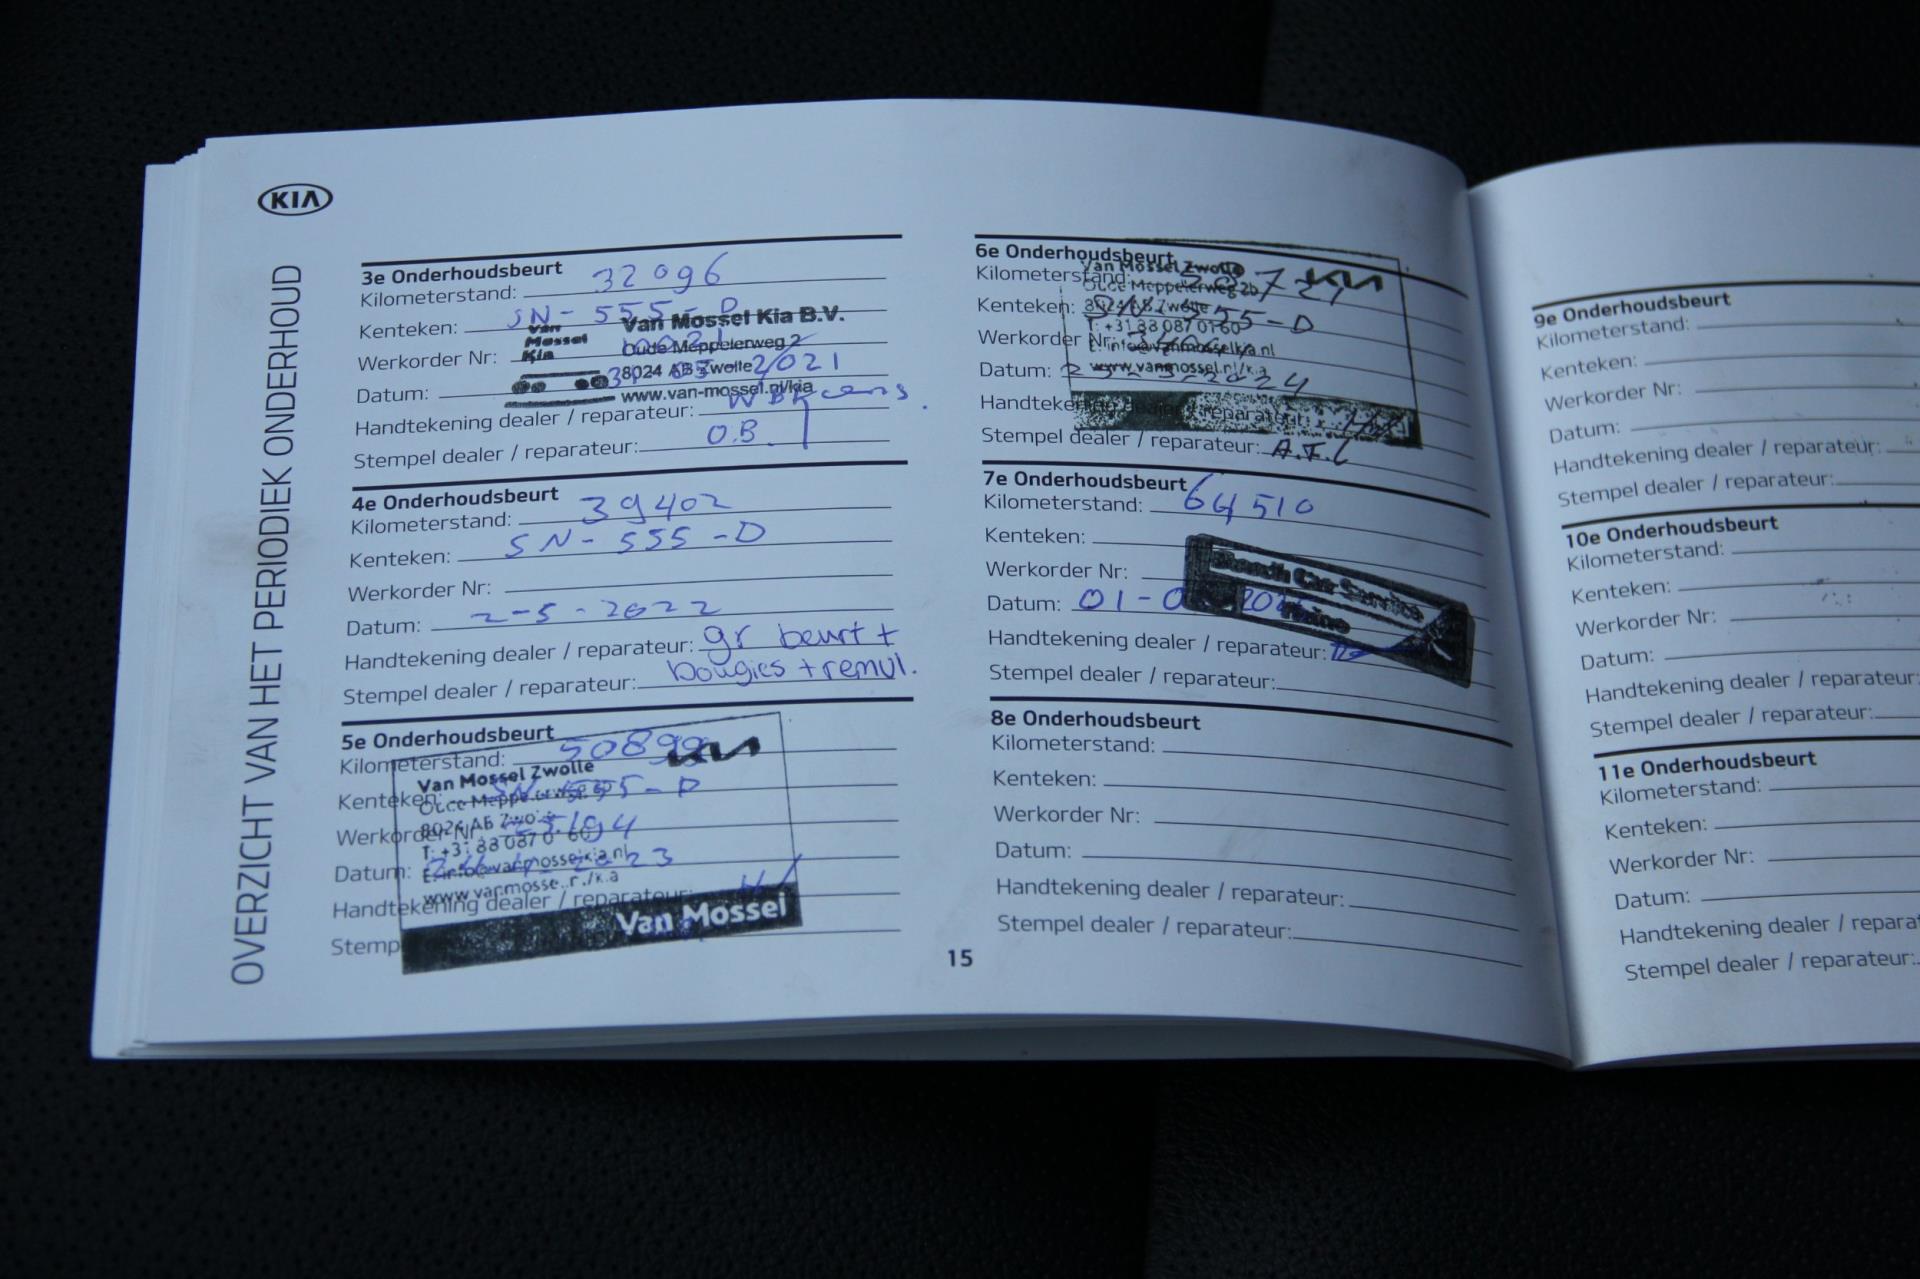 KIA
OVERZICHT VAN HET PERIODIEK ONDERHOUD
3e Onderhoudsbeurt
Kilometerstand: 32096
Kenteken: SN-555-D
Van Mossel Kia
Van Mossel Kia B.V.
Werkorder Nr:
Oude Meppelerweg 2
8024 AB Zwolle
Datum: 2021
www.van-mossel.nl/kia
Handtekening dealer / reparateur:
Stempel dealer / reparateur: O.B.
4e Onderhoudsbeurt
Kilometerstand: 39402
Kenteken: SN-555-D
Werkorder Nr:
Datum: 2-5-2022
Handtekening dealer / reparateur: gr beurt +
Stempel dealer / reparateur: bougies + remvl.
5e Onderhoudsbeurt
Kilometerstand: 50899
KIA
Van Mossel Zwolle
Kenteken: SN-555-D
Oude Meppelerweg
8024 AB Zwolle
Werkorder Nr
T: +31 88 087 01 60
Datum: 2023
E: info@vanmosselkia.nl
www.vanmossel.nl/kia
Handtekening dealer / reparateur:
Van Mossel
Stemp
15
6e Onderhoudsbeurt
Kilometerstand:
KIA
Van Mossel Zwolle
Oude Meppelerweg 2b
Kenteken: SN-555-D
8024 AB Zwolle
T: +31 88 087 01 60
Werkorder Nr:
E: info@vanmosselkia.nl
Datum: 2024
www.vanmossel.nl/kia
Handtekening dealer / reparateur:
Stempel dealer / reparateur:
7e Onderhoudsbeurt
Kilometerstand: 64510
Kenteken:
Werkorder Nr:
Car Service
Datum: 01-0
Handtekening dealer / reparateur:
Stempel dealer / reparateur:
8e Onderhoudsbeurt
Kilometerstand:
Kenteken:
Werkorder Nr:
Datum:
Handtekening dealer / reparateur:
Stempel dealer / reparateur:
9e Onderhoudsbeurt
Kilometerstand:
Kenteken:
Werkorder Nr:
Datum:
Handtekening dealer / reparateur:
Stempel dealer / reparateur:
10e Onderhoudsbeurt
Kilometerstand:
Kenteken:
Werkorder Nr:
Datum:
Handtekening dealer / reparateur:
Stempel dealer / reparateur:
11e Onderhoudsbeurt
Kilometerstand:
Kenteken:
Werkorder Nr:
Datum:
Handtekening dealer / repara
Stempel dealer / reparateur: